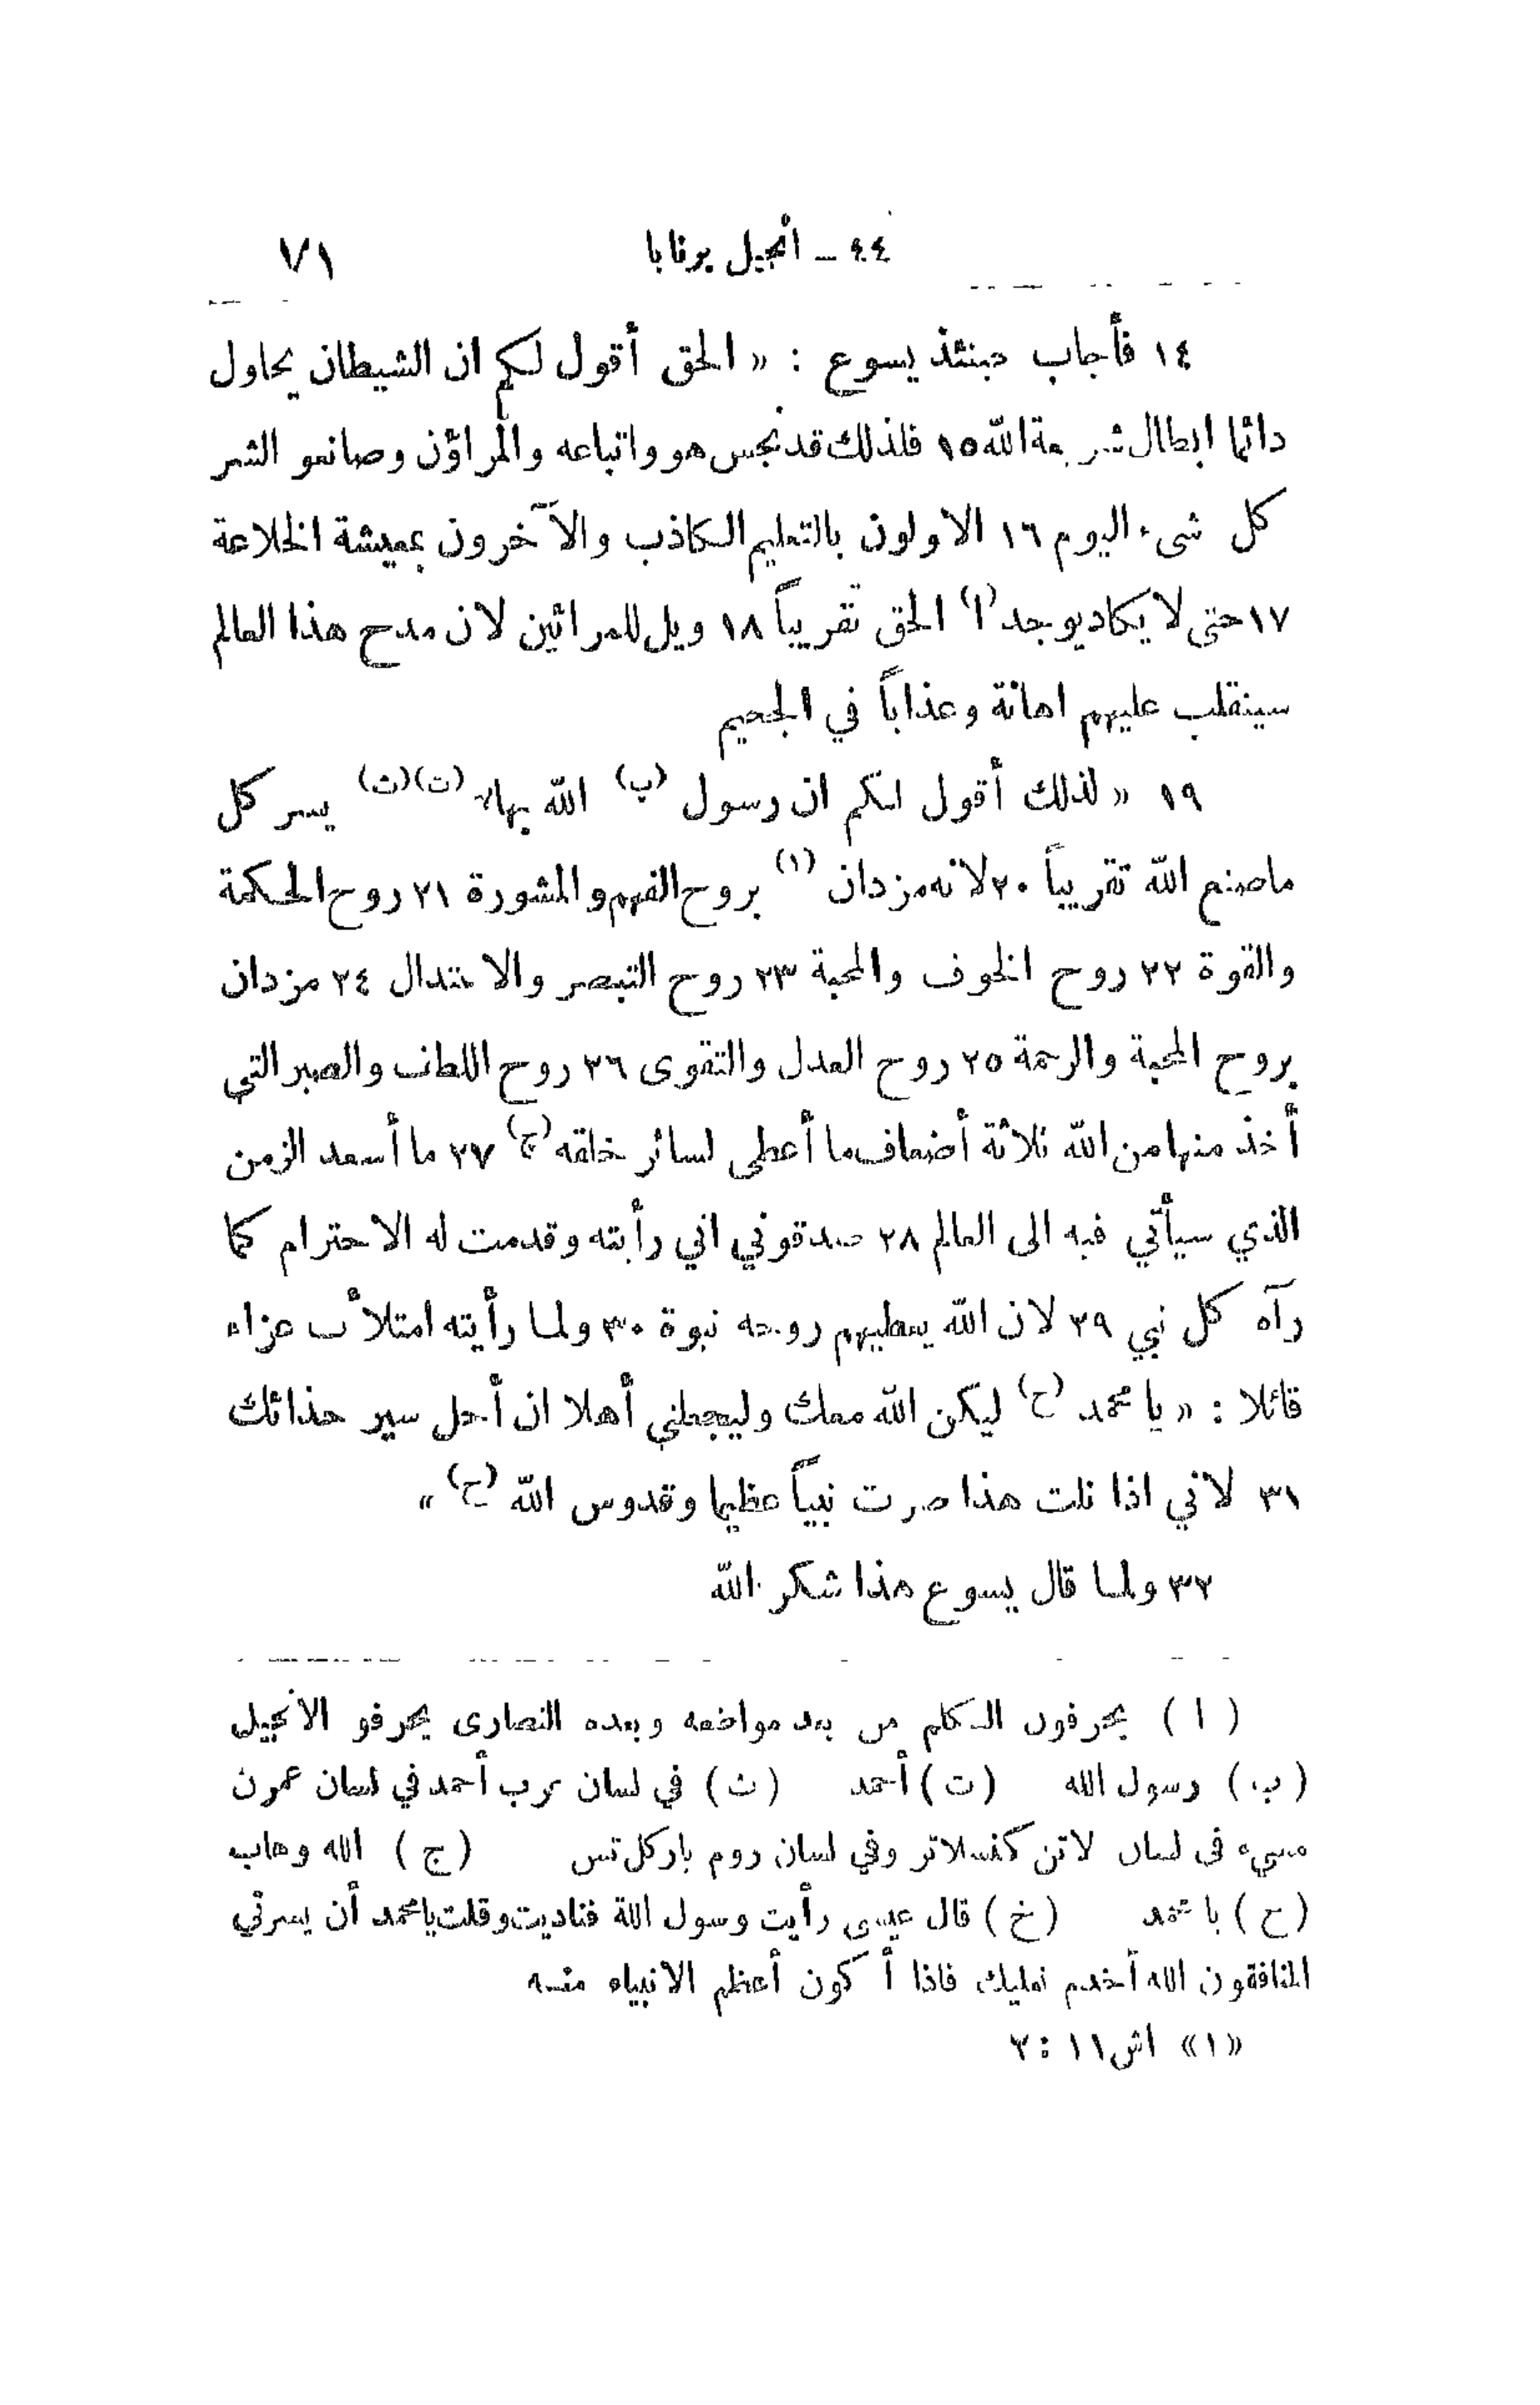 ٤٤ ــ انجيل برنابا ٧١
١٤ فأجاب حينئذ يسوع : « الحق أقول لكم ان الشيطان يحاول
دائما ابطال شريعة الله ١٥ فلذلك قد نجس هو واتباعه والمراؤن وصانعو الشر
كل شيء اليوم ١٦ الاولون بالتعليم الكاذب والآخرون بمعيشة الخلاعة
١٧ حتى لا يكاد يوجد (ا) الحق تقريباً ١٨ ويل للمرائين لان مدح هذا العالم
سينقلب عليهم اهانة وعذاباً في الجحيم
١٩ « لذلك أقول لكم ان رسول (ب) الله بهاء (ت)(ث) يسر كل
ما صنع الله تقريباً ٢٠ لانه مزدان (١) بروح الفهم والمشورة ٢١ روح الحكمة
والقوة ٢٢ روح الخوف والمحبة ٢٣ روح التبصر والاعتدال ٢٤ مزدان
بروح المحبة والرحمة ٢٥ روح العدل والتقوى ٢٦ روح اللطف والصبر التي
أخذ منها من الله ثلاثة أضعاف ما أعطى لسائر خلقه (ج) ٢٧ ما أسعد الزمن
الذي سيأتي فيه الى العالم ٢٨ صدقوني اني رأيته وقدمت له الاحترام كما
رآه كل نبي ٢٩ لان الله يعطيهم روحه نبوة ٣٠ ولما رأيته امتلأت عزاء
قائلا : « يا محمد (ح) ليكن الله معك وليجعلني أهلا ان أحل سير حذائك
٣١ لاني اذا نلت هذا صرت نبياً عظيما وقدوس الله (خ) »
٣٢ ولما قال يسوع هذا شكر الله
( ا ) يحرفون الكلم من بعد مواضعه وبعده النصارى يحرفو الانجيل
(ب) رسول الله (ت) أحمد (ث) في لسان عرب أحمد في لسان عمرن
مسيء في لسان لاتن كنسلاتر وفي لسان روم باركل تس (ج) الله وهاب
(ح) يا محمد (خ) قال عيسى رأيت رسول اللة فناديت وقلت يا محمد أن يسرني
المنافقون الله أخدم نعليك فاذا أكون أعظم الانبياء منه
«١» اش ١١ : ٢